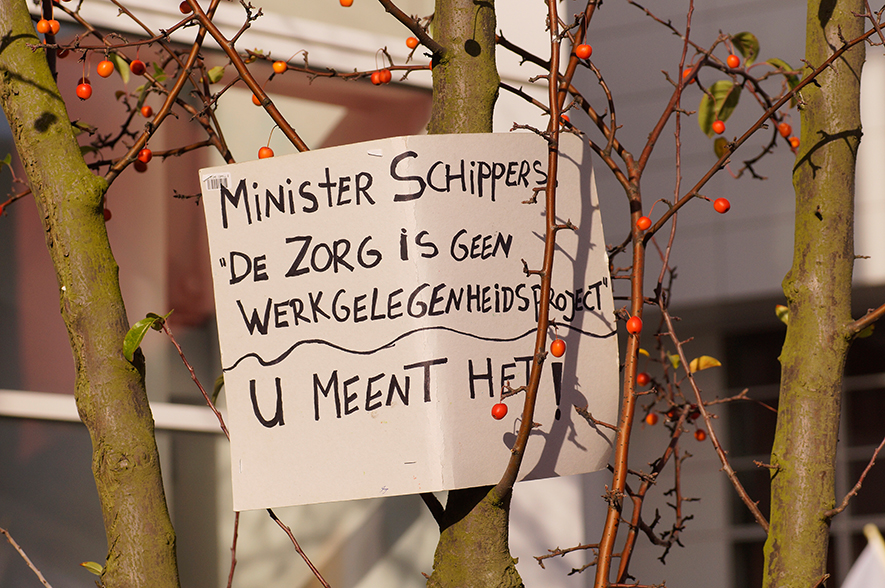 MINISTER SCHIPPERS
"DE ZORG IS GEEN
WERKGELEGENHEIDSPROJECT"
U MEENT HET!